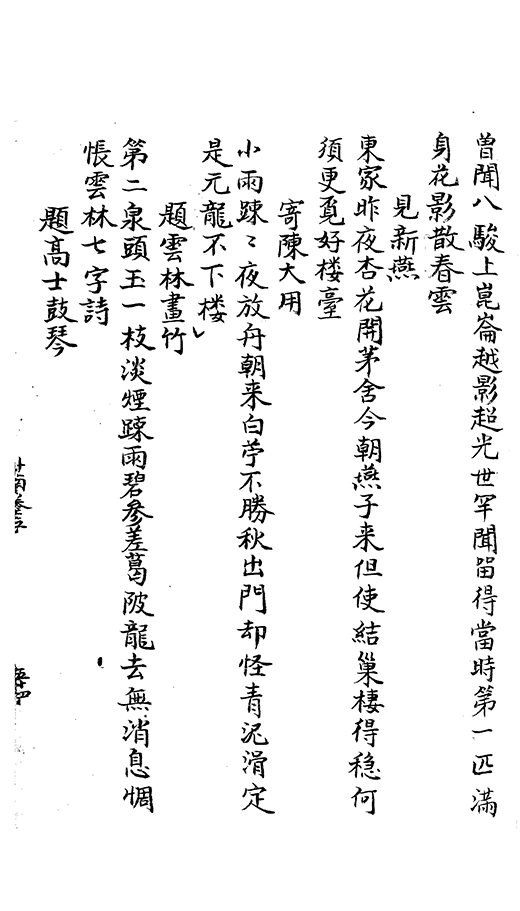 曽聞八駿上崑崙越影超光世罕聞留得當時第一匹滿
身花影散春雲
見新燕
東家昨夜杏花開茅舍今朝燕子来但使結巢棲得穏何
須更覔好楼臺
寄陳大用
小雨踈〻夜放舟朝来白苧不勝秋出門却怪青泥滑定
是元龍不下楼
題雲林畫竹
第二泉頭玉一枝淡煙踈雨碧參差葛陂龍去無消息惆
悵雲林七字詩
題高士鼓琴